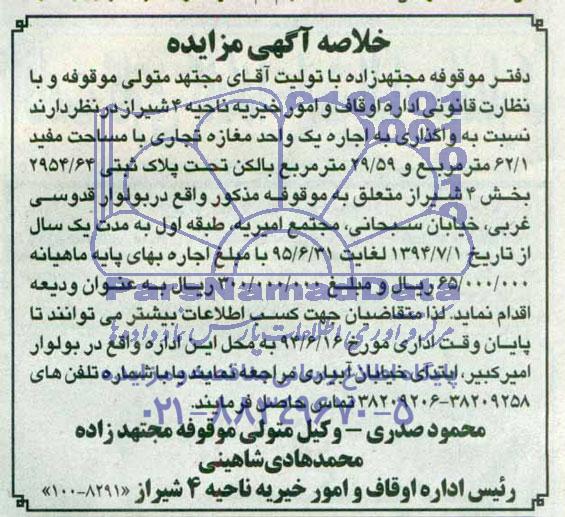 خلاصه آگهی مزایده
دفتر موقوفه مجتهدزاده با تولیت آقای مجتهد متولی موقوفه و با
نظارت قانونی اداره اوقاف و امور خیریه ناحیه ۴ شیراز در نظر دارند
نسبت به واگذاری به اجاره یک واحد مغازه تجاری با مساحت مفید
۶۲/۱ مترمربع و ۲۹/۵۹ مترمربع بالکن تحت پلاک ثبتی ۲۹۵۴/۶۴
بخش ۴ شیراز متعلق به موقوفه مذکور واقع در بولوار قدوسی
غربی، خیابان سبحانی، مجتمع امیریه، طبقه اول به مدت یک سال
از تاریخ ۱۳۹۴/۷/۱ لغایت ۹۵/۶/۳۱ با مبلغ اجاره بهای پایه ماهیانه
۶۵/۰۰۰/۰۰۰ ریال و مبلغ ۳۰۰/۰۰۰/۰۰۰ ریال به عنوان ودیعه
اقدام نماید. لذا متقاضیان جهت کسب اطلاعات بیشتر می توانند تا
پایان وقت اداری مورخ ۹۴/۶/۱۶ به محل این اداره واقع در بولوار
امیرکبیر، ابتدای خیابان آبیاری مراجعه نمایند یا با شماره تلفن های
۳۸۲۰۹۲۵۸-۳۸۲۰۹۲۰۶ تماس حاصل فرمایند.
محمود صدری – وکیل متولی موقوفه مجتهد زاده
محمدهادی شاهینی
رئیس اداره اوقاف و امور خیریه ناحیه ۴ شیراز «۸۲۹۱-۱۰۰»
ParsNamadData
۰۲۱-۸۸۳۴۹۶۷۰-۵